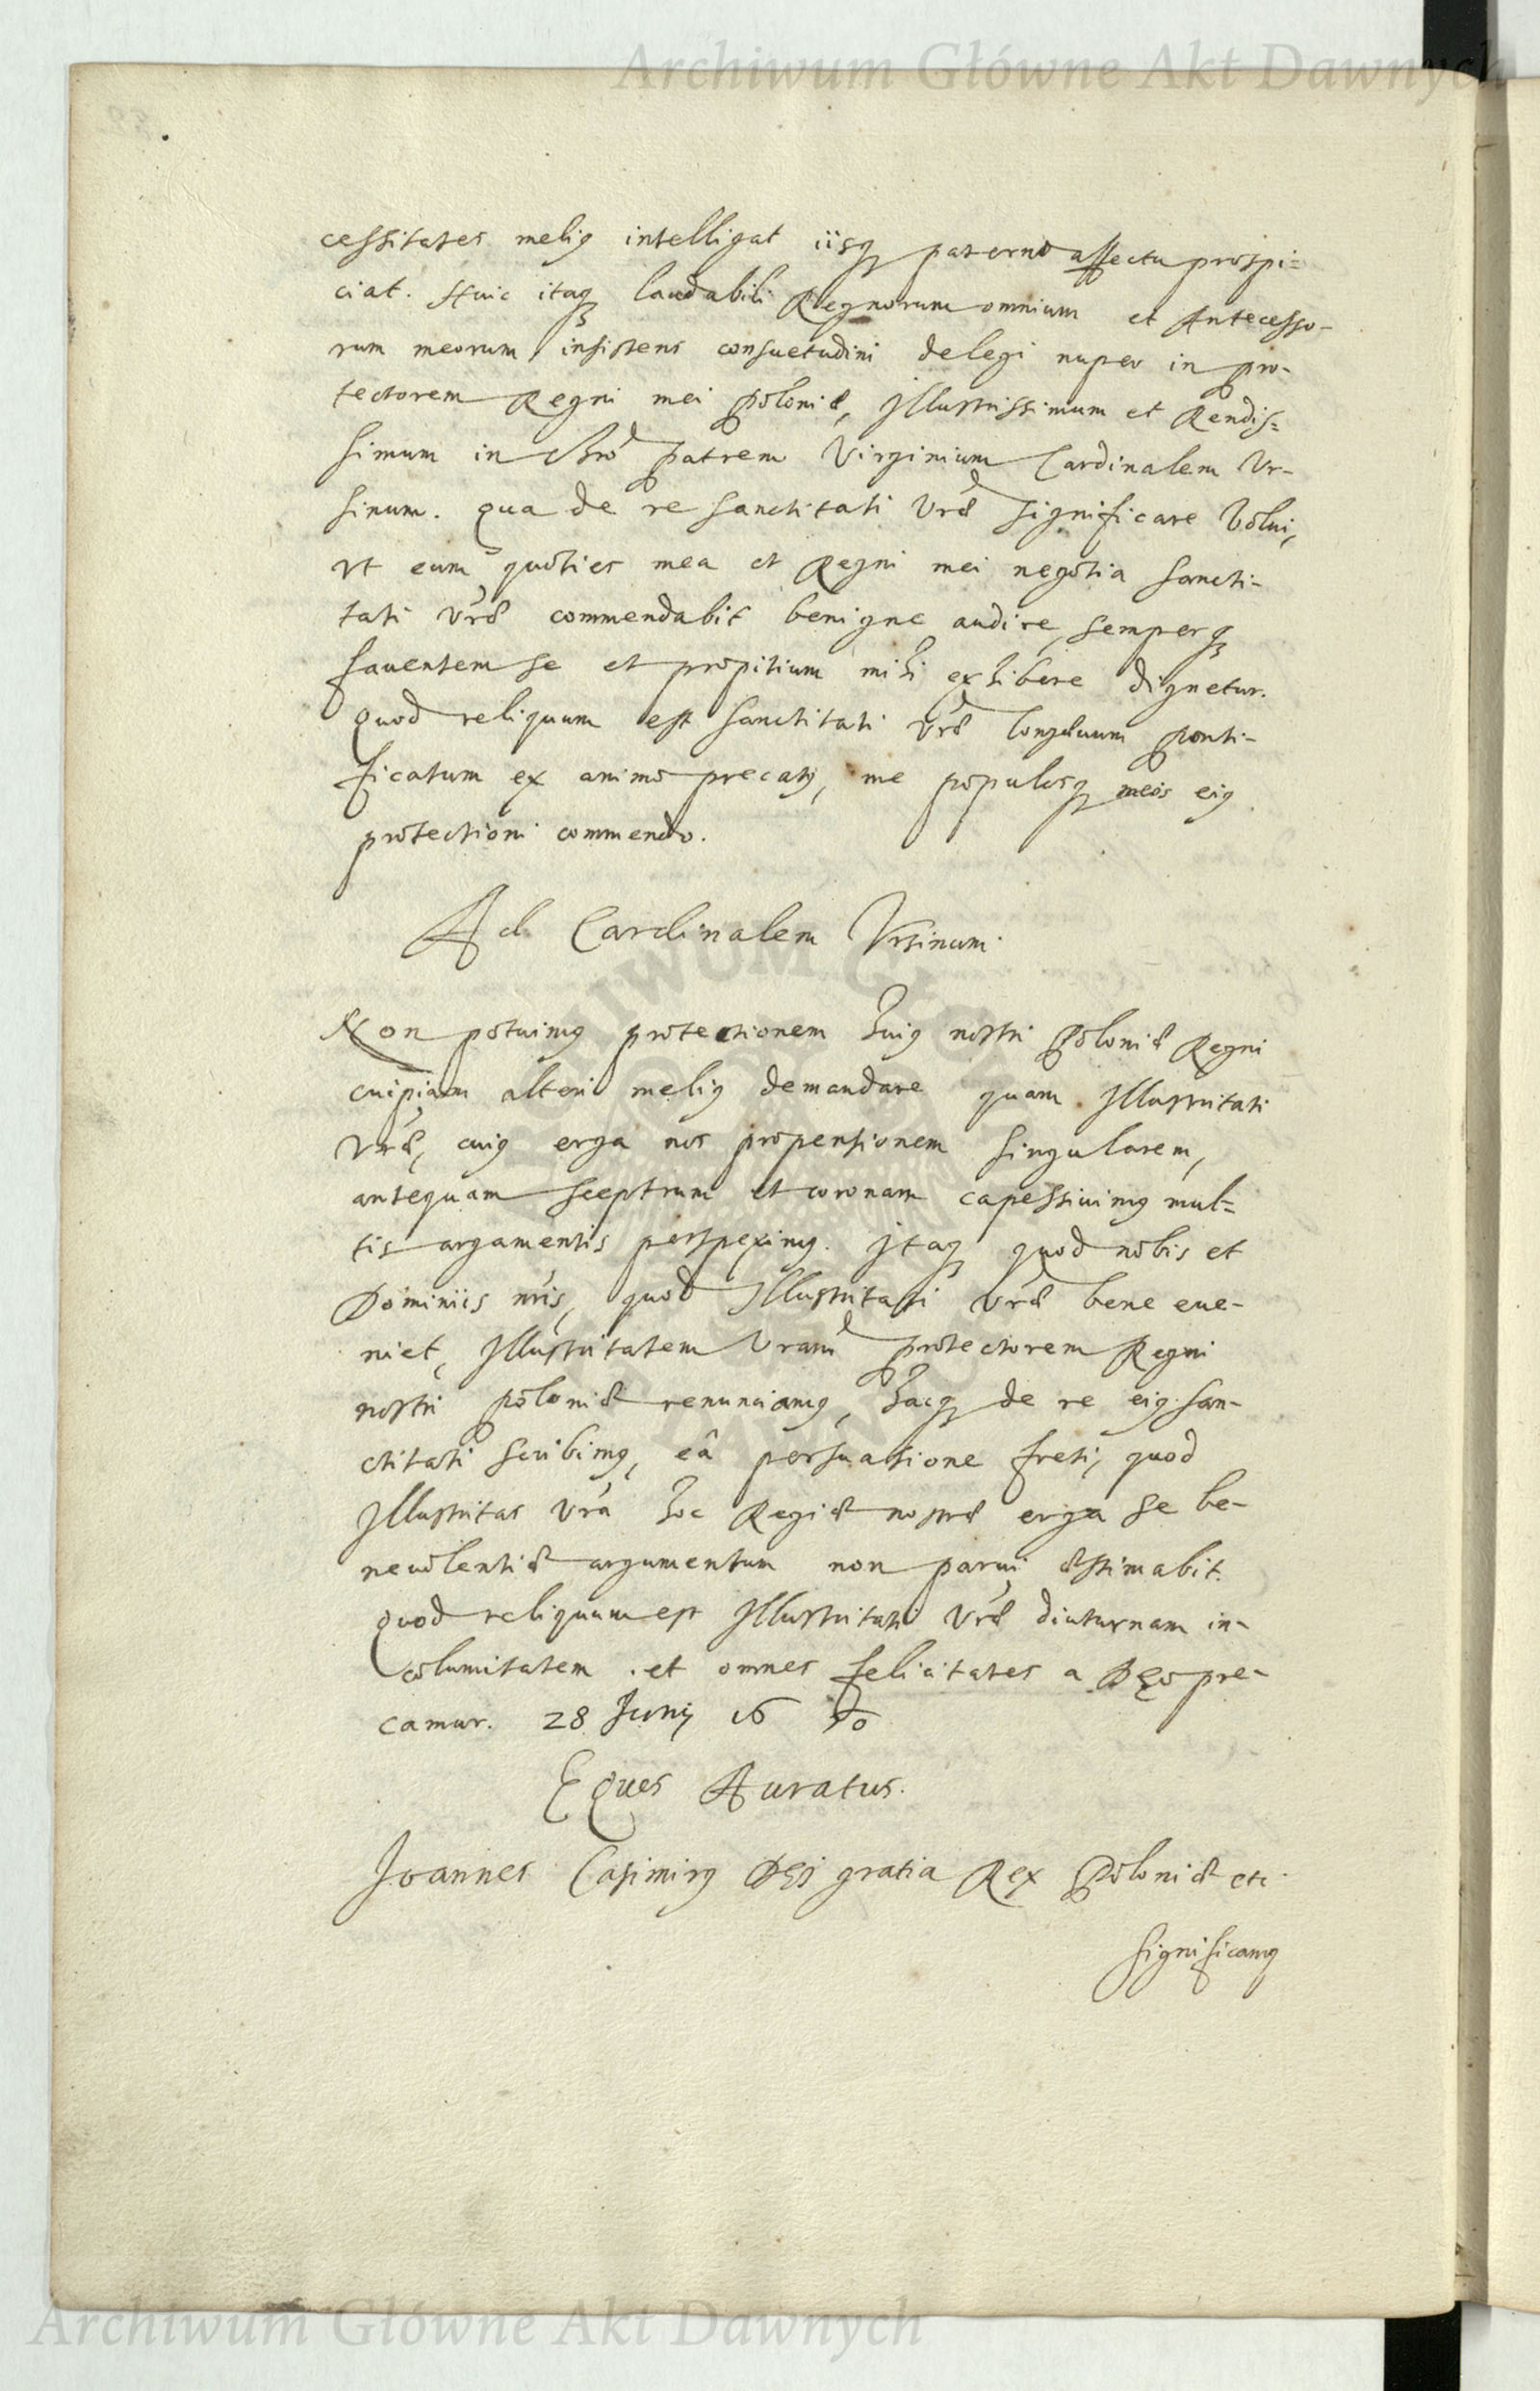 Archiwum Główne Akt Dawnych
cessitates meliꝰ intelligat iisqꝫ paterno affectu prospi=
ciat. Huic itaqꝫ laudabili Regnorum omnium et Antecesso-
rum meorum insistens consuetudini delegi nuper in pro-
tectorem Regni mei Poloniæ, Illustrissimum et Rendis=
simum in Chro patrem Virginium Cardinalem Vr-
sinum. Qua de re Sanctitati Vræ significare volui,
vt eum quoties mea et Regni mei negotia Sancti-
tati Vræ commendabit benigne audire, semperqꝫ
fauentem se et propitium mihi exhibere dignetur.
Quod reliquum est Sanctitati Vræ longæuum Ponti-
ficatum ex animo precatꝰ, me populosqꝫ meos eiꝰ
protectioni commendo.
Ad Cardinalem Vrsinum.
Non potuimꝰ protectionem huiꝰ nostri Poloniæ Regni
cuipiam alteri meliꝰ demandare quam Illustritati
Vræ, cuiꝰ erga nos propensionem singularem,
antequam sceptrum et coronam capessiuimꝰ mul=
tis argumentis perspeximꝰ. Itaqꝫ quod nobis et
Dominiis nris, quod Illustritati Vræ bene eue-
niet, Illustritatem Vram protectorem Regni
nostri Poloniæ renunciamꝰ, hacqꝫ de re eiꝰ San-
ctitati scribimꝰ, eâ persuasione freti, quod
Illustritas Vra hoc Regiæ nostræ erga se be-
neuolentiæ argumentum non parui æstimabit.
Quod reliquum est Illustritati Vræ diuturnam in-
columitatem et omnes felicitates a DEO pre-
camur. 28 Junij 16 50
Eques Auratus.
Joannes Casimirꝰ DEI gratia Rex Poloniæ etc.
Significamꝰ
Archiwum Główne Akt Dawnych